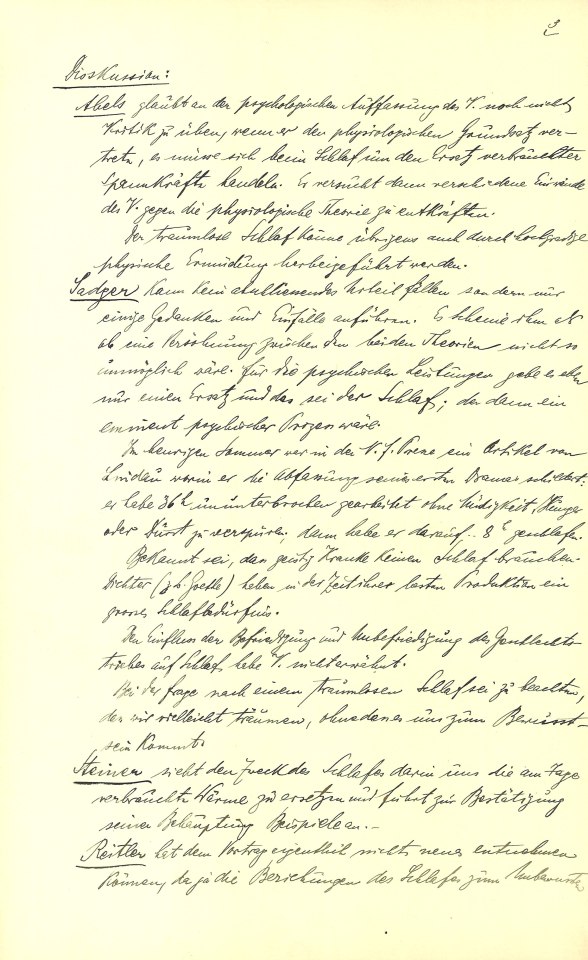 3
Diskussion:
Abels glaubt an der psychologischen Auffassung des V. noch nicht
Kritik zu üben, wenn er den physiologischen Grundsatz ver-
trete, es müsse sich beim Schlaf um den Ersatz verbrauchter
Spannkräfte handeln. Er versucht dann verschiedene Einwände
des V. gegen die physiologische Theorie zu entkräften.
Der traumlose Schlaf könne übrigens auch durch hochgradige
physische Ermüdung herbeigeführt werden.
Sadger kann kein abschliessendes Urteil fällen sondern nur
einige Gedanken und Einfälle anführen. Es scheine ihm als
ob eine Versöhnung zwischen den beiden Theorien nicht so
unmöglich wäre. Für die psychischen Leistungen gebe es eben
nur einen Ersatz und das sei der Schlaf; der dann ein
eminent psychischer Prozess wäre.
Im heurigen Sommer war in der N. f. Presse ein Artikel von
Lindau worin er die Abfassung seines ersten Dramas schildert:
er habe 36h ununterbrochen gearbeitet ohne Müdigkeit, Hunger
oder Durst zu verspüren. dann habe er darauf .. 8h geschlafen.
Bekannt sei, dass geistig Kranke keinen Schlaf brauchen.
Dichter (z.b. Goethe) haben in der Zeit ihrer besten Produktion ein
grosses Schlafbedürfnis.
Den Einfluss der Befriedigung und Unbefriedigung des Geschlechts-
triebes auf Schlaf habe V. nicht erwähnt.
Bei der Frage nach einem traumlosen Schlaf sei zu beachten,
dass wir vielleicht träumen, ohne dass es uns zum Bewusst-
sein kommt.
Steiner sieht den Zweck des Schlafes darin uns die am Tage
verbrauchte Wärme zu ersetzen und führt zur Bestätigung
seiner Behauptung Beispiele an.-
Reitler hat dem Vortrag eigentlich nichts neues entnehmen
können, da ja die Beziehungen des Schlafes zum Unbewussten